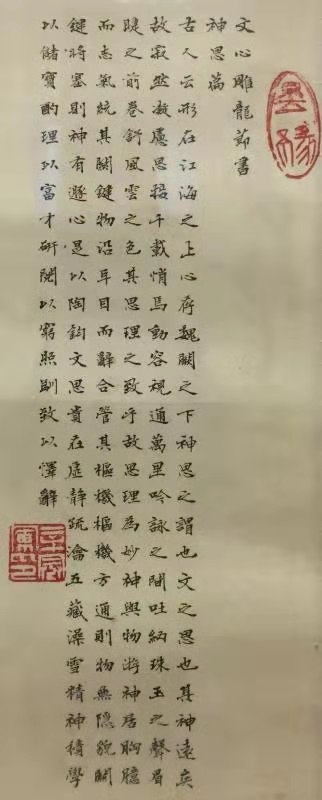 文心雕龍節書
神思篇
古人云形在江海之上心存魏闕之下神思之謂也文之思也其神遠矣
故寂然凝慮思接千載悄焉動容視通萬里吟詠之間吐納珠玉之聲眉
睫之前卷舒風雲之色其思理之致乎故思理為妙神與物游神居胸臆
而志氣統其關鍵物沿耳目而辭合管其樞機樞機方通則物無隱貌關
鍵將塞則神有遯心是以陶鈞文思貴在虛靜疏瀹五藏澡雪精神積學
以儲寶酌理以富才研閱以窮照馴致以懌辭